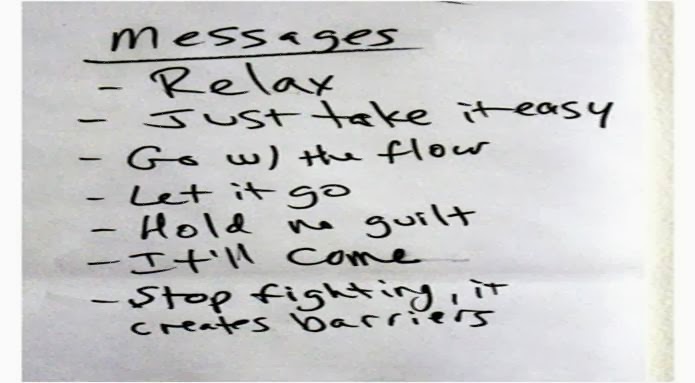 Messages
- Relax
- Just take it easy
- Go w) the flow
- Let it go
- Hold no guilt
- It'll come
- Stop fighting, it
creates barriers